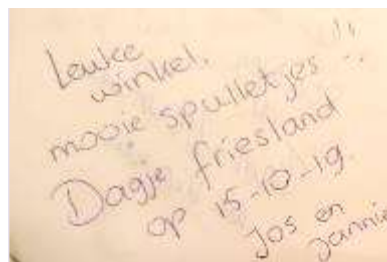 Leuke
winkel,
mooie spulletjes !!
Dagje friesland
op 15-10-19.
Jos en
Jannie